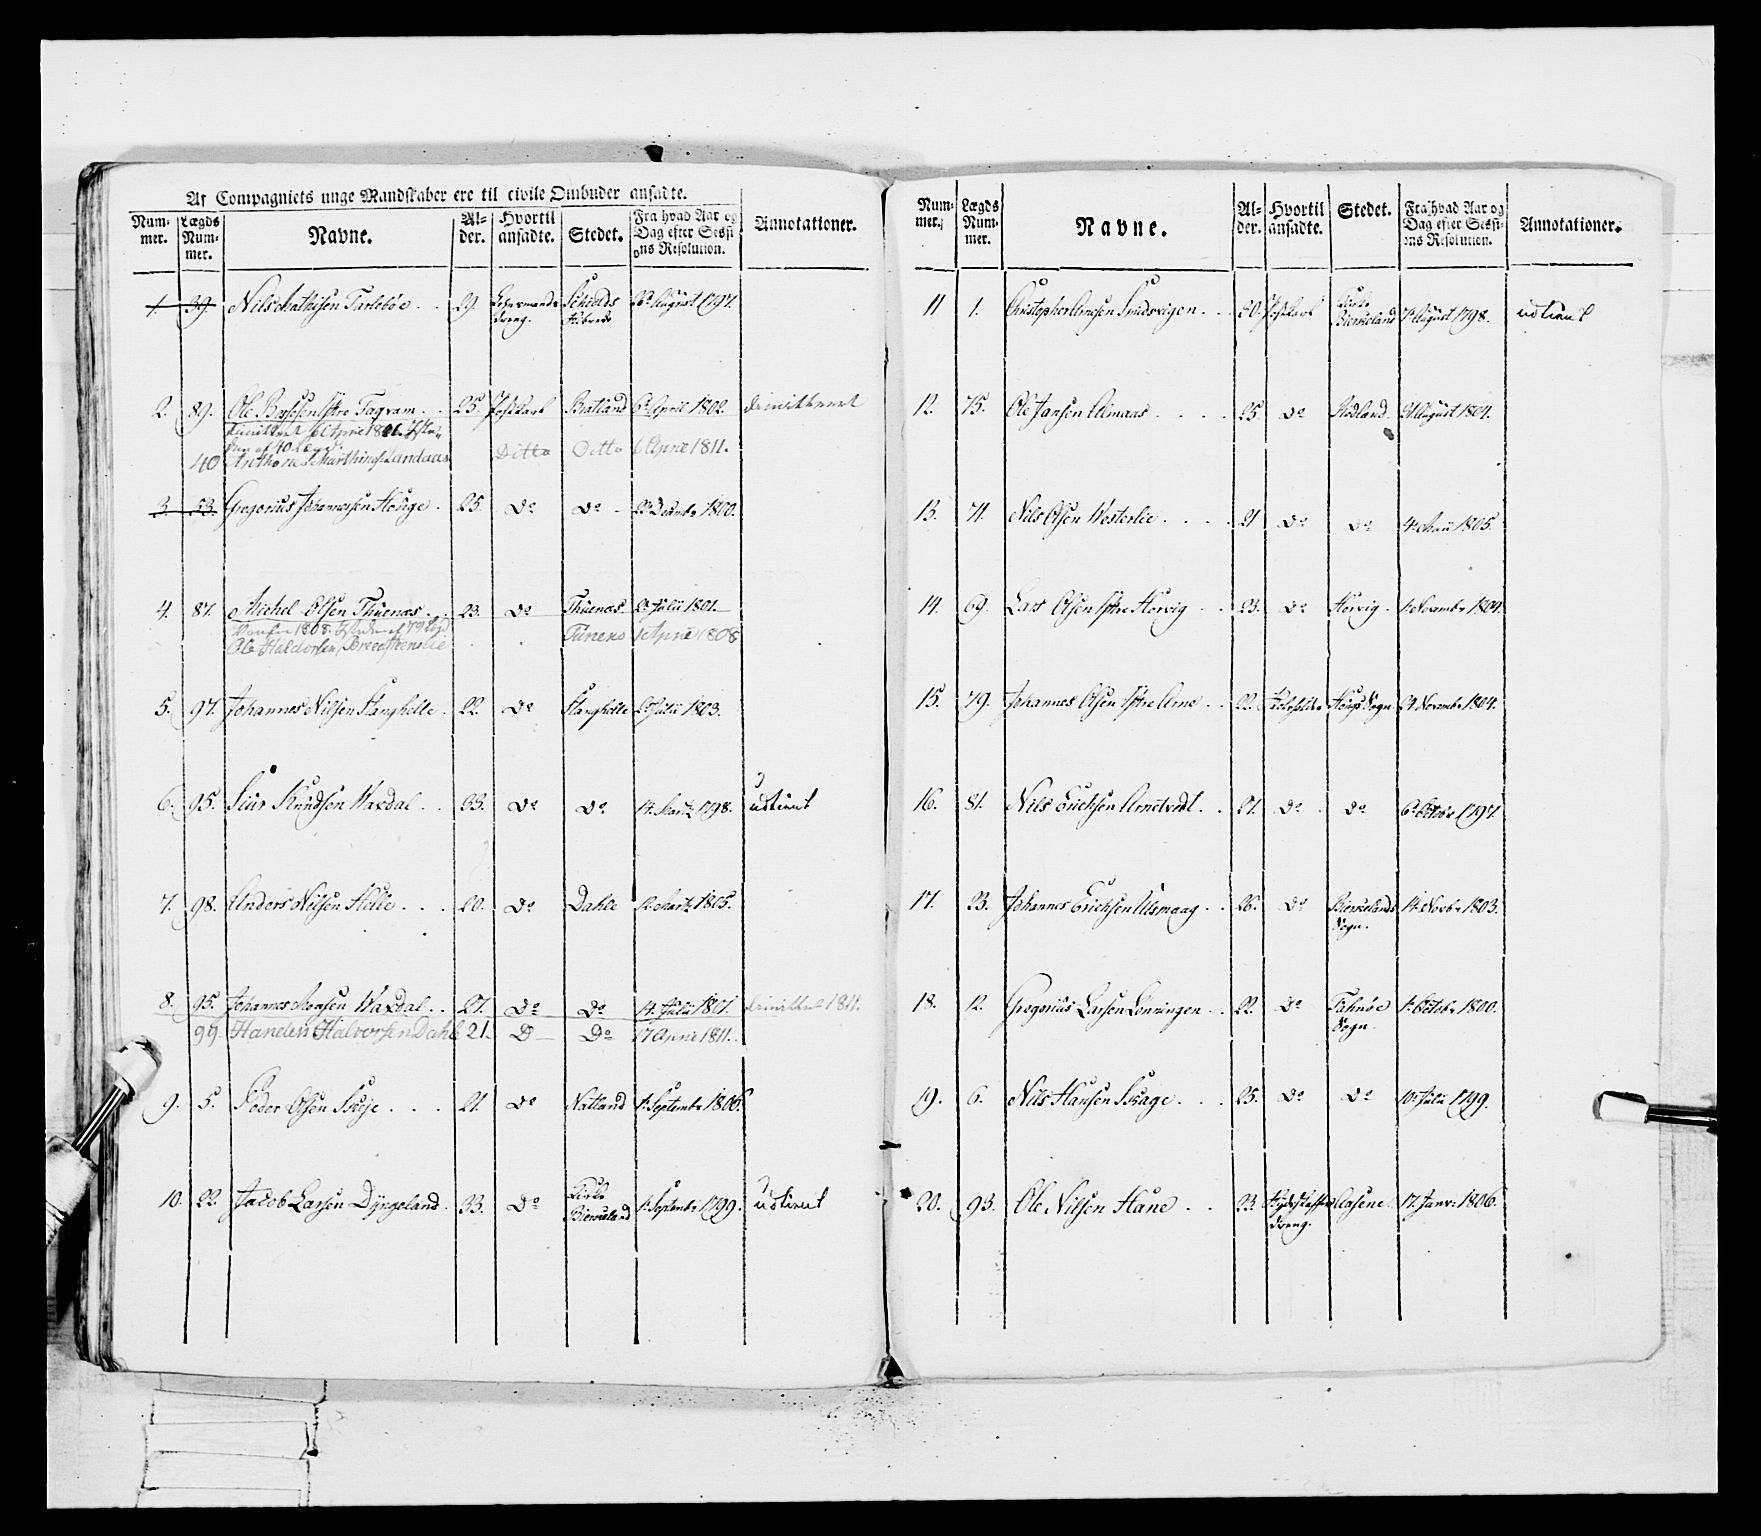 Af Compagniets unge Mandskaber ere til civile Ombuder ansadte.
Num-mer. Lægds Num-mer. Navne. Al-der. Hvortil ansadte. Stedet. Fra hvad Aar og Dag efter Sessi-ons Resolution. Annotationer.
1. 39. Nils Mathisen Tarlebøe 29. dreng. Schiolds 26 August 1797.
2. 89. Ole Tagram 25. Postkarl Batland 6 April 1802. dimitteret
dimitteret 6 April 1811.
40 Landaas Ditto Ditto 6 April 1811.
3. 53. Gregorius Johannesen Houge 25. do do 1800.
4. 87. Michel Olsen Thuenæs 23. do Thuenæs 2 Julii 1801.
1808.
Ole Haldorsen Tunens 1 April 1808
5. 97. Johannes Nilsen Stanghelle 22. do Stanghelle Julii 1803.
6. 95. Siur Knudsen Waxdal 33. do do 14 Martz 1798. udtient
7. 98. Anders Nilsen Helle 20. do Dahle 12 Martz 1805.
8. 95. Johannes Monsen Waxdal 27. do do 14 Julii 1801. dimitteret 1811.
99. Halvorsen Dahle 21. D Do 17 April 1811.
9. 5. Peder Olsen Skeje 21. do Natland 1 Septembr 1806.
10. 22. Jacob Larsen Dyngeland 33. do Birkeland 1 Septembr 1799. udtient
Num-mer. Lægds Num-mer. Navne. Al-der. Hvortil ansadte. Stedet. Fra hvad Aar og Dag efter Sessi-ons Resolution. Annotationer.
11 1. Christopher Arnesen 30. Postkarl Birkeland August 1798. udtient
12. 75. Ole Jansen Almaas 25 do Rødland 21 August 1804.
13. 71. Nils Olsen Westerlie 21 do do 4 Maii 1805.
14. 69. Lars Olsen Hervig 23. do Hervig 1 Novembr 1804.
15. 79. Johannes Olsen Arne 22. Hougs Sogn 24 Novembr 1804.
16. 81. Nils Erichsen Arnetvedt 27. do do 6 Octobr 1797.
17. 23. Johannes Erichsen Ulsmaag 26. do Birkelands Sogn. 14 Novbr 1803.
18. 12. Gregorius Larsen Lønningen 22. do Fahnøe Sogn. 1 Octobr 1800.
19. 6. Nils Hansen Skage 25. do do 10 Julii 1799.
20. 93. Ole Nilsen Hane 23. dreng. Aasene 17 Janr 1806.